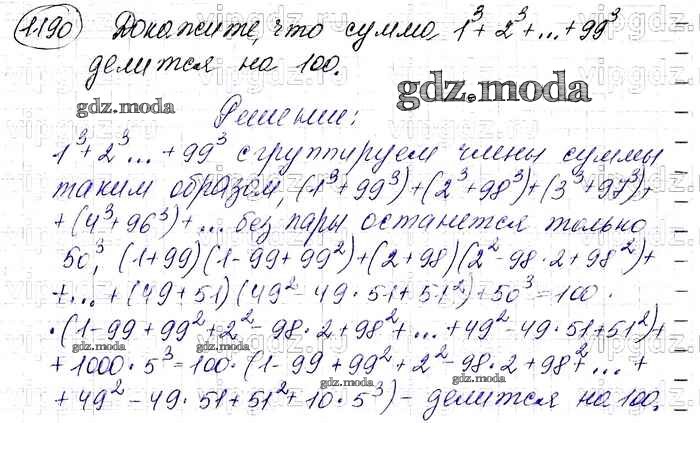 1.190 Докажите, что сумма 1³+2³+...+99³
делится на 100.
gdz.moda
gdz.moda
Решение:
1³+2³...+99³ сгруппируем члены суммы
таким образом, (1³+99³)+(2³+98³)+(3³+97³)+
+(4³+96³)+... без пары останется только
50³, (1+99)(1-99+99²)+(2+98)(2²-98·2+98²)+
+...+(49+51)(49²-49·51+51²)+50³=100·
·(1-99+99²+2²-98·2+98²+...+49²-49·51+51²)+
gdz.moda
+1000·5³=100·(1-99+99²+2²-98·2+98²+...+
gdz.moda
gdz.moda
+49²-49·51+51²+10·5³) - делится на 100.